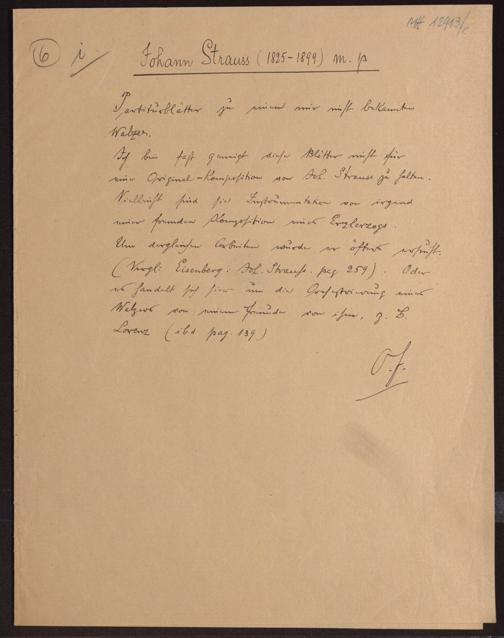 MH 12913/c
6 i.
Johann Strauss (1825-1899) m. p
Partiturblätter zu einem mir nicht bekannten
Walzer.
Ich bin fast geneigt diese Blätter nicht für
eine Original-Komposition von Joh. Strauss zu halten.
Vielleicht sind sie Instrumentation von irgend
einer fremden Komposition eines Erzherzogs.
Um dergleichen Arbeiten wurde er öfters ersucht.
(Vergl: Eisenberg: Joh. Strauss. pag 259). Oder
es handelt sich hier um die Orchestrierung eines
Walzers von einem Freunde von ihm, z. B.
Lorenz (ibd pag. 139)
O.f.